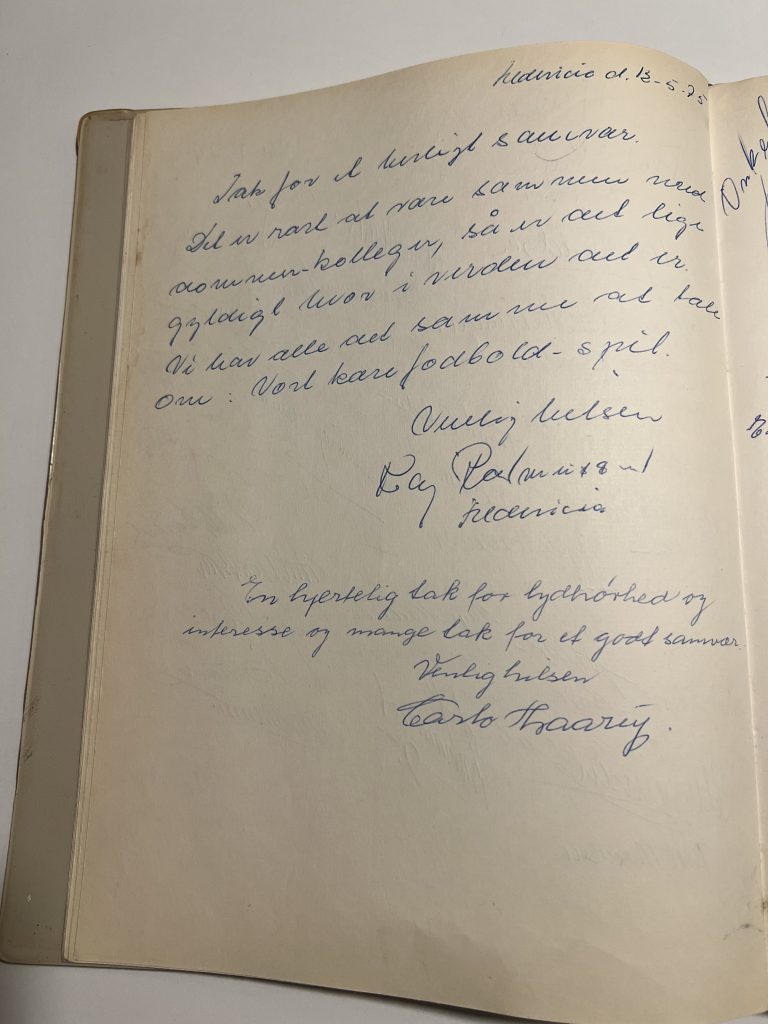 Fredericia d. 13-5-75
Tak for et herligt samvær.
Det er rart at være sammen med
dommer-kolleger, så er det lige
gyldigt hvor i verden det er.
Vi har alle det samme at tale
om: Vort kære fodbold-spil.
Venlig hilsen
Kaj
Fredericia
En hjertelig tak for lydhørhed og
interesse og mange tak for et godt samvær.
Venlig hilsen
Carlo
Onkel